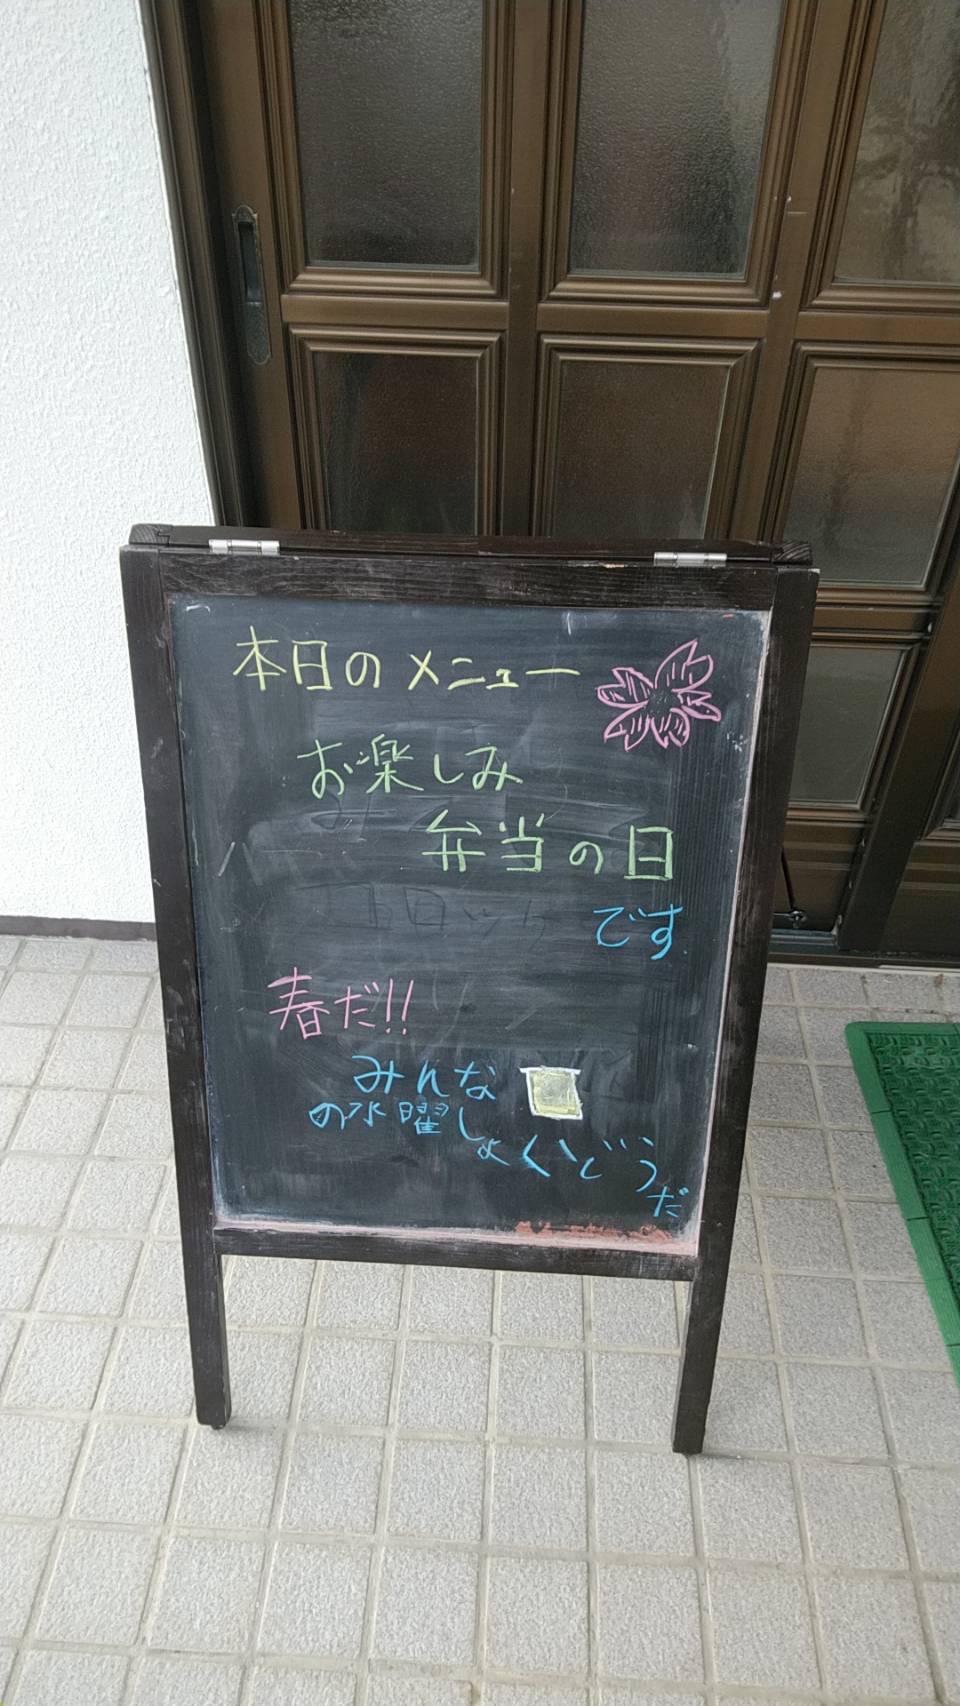 本日のメニュー
お楽しみ
弁当の日
です
春だ!!
みんな
の水曜しょくどう
だ